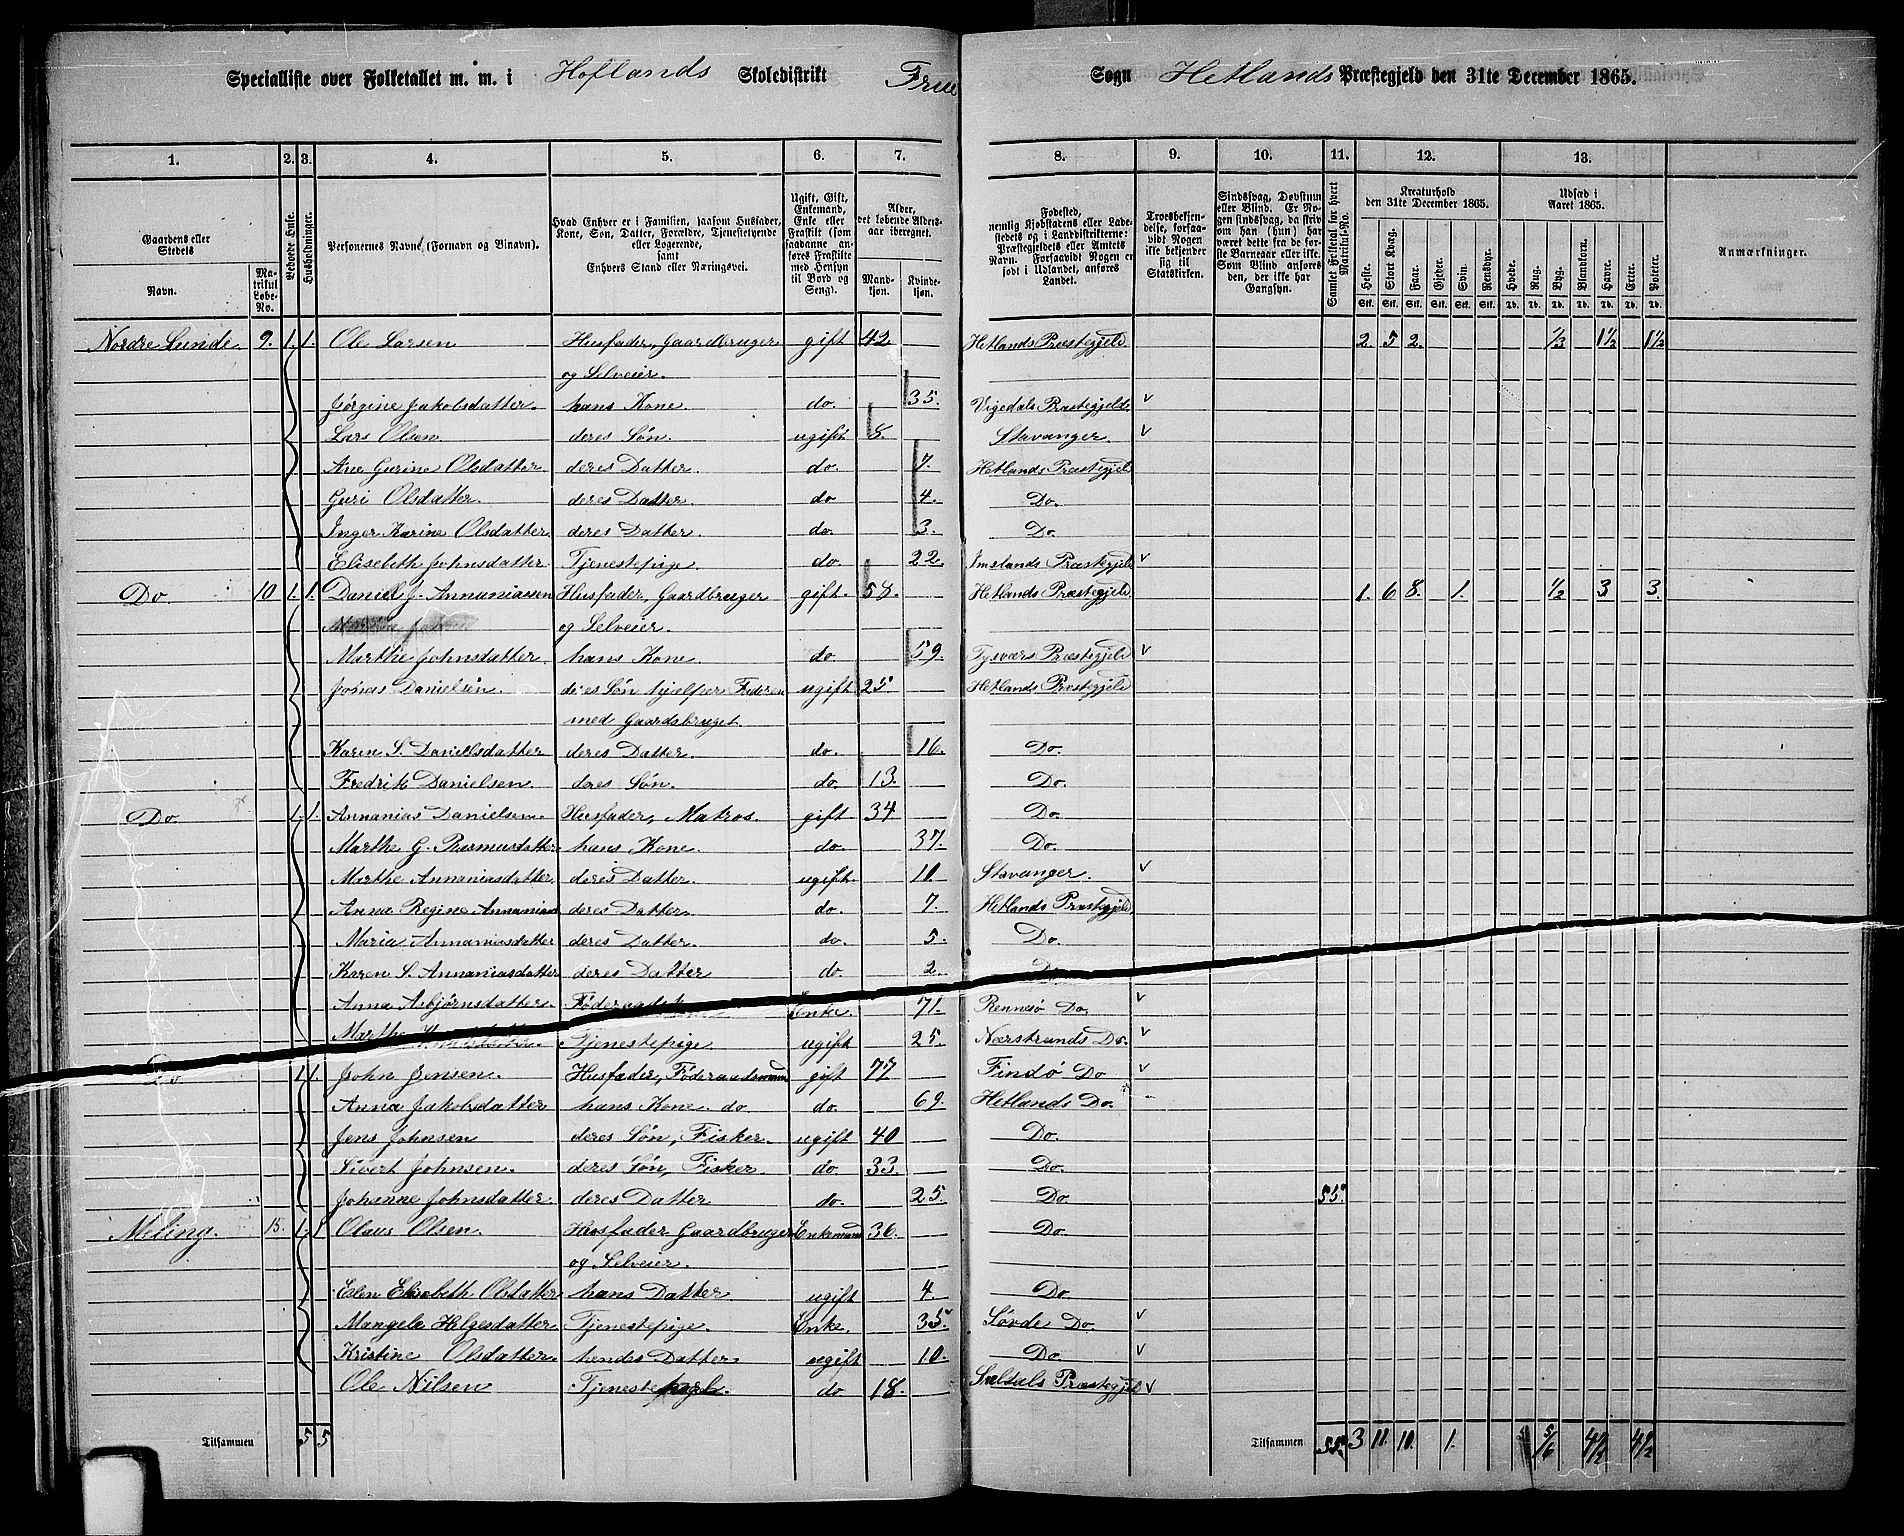 Specialliste over Folketallet m. m. i Hoflands Skoledistrikt Frue Sogn Hetlands Præstegjeld den 31te December 1865.
1. 2. 3. 4. 5. 6. 7. 8. 9. 10. 11. 12. 13.
Gaardens eller Stedets Navn. Matrikul Løbe-No. Beboede Huse. Husholdninger. Personernes Navne (Fornavn og Binavn). Hvad Enhver er i Familien, saasom Husfader, Kone, Søn, Datter, Forældre, Tjenestetyende eller Logerende, samt Enhvers Stand eller Næringsvei. Ugift, Gift, Enkemand, Enke eller Fraskilt (som saadanne anføres Fraskilte med Hensyn til Bord og Seng). Alder, det løbende Aldersaar iberegnet. Mandkjøn. Kvindekjøn. Fødested, nemlig Kjøbstadens eller Ladestedets og i Landdistrikterne: Præstegjeldets eller Amtets Navn. Forsaavidt Nogen er født i Udlandet, anføres Landet. Troesbekjendelse, forsaavidt Nogen ikke bekjender sig til Statskirken. Sindssvag, Døvstum eller Blind. Er Nogen sindssvag, da skrives om han (hun) har været dette fra de første Barneaar eller ikke. Som Blind anføres den, der ikke har Gangsyn. Samlet Folketal for hvert Matrikul-No. Kreaturhold den 31te December 1865. Udsæd i Aaret 1865. Anmærkninger.
Heste. Stort Kvæg. Faar. Gjeder. Svin. Rensdyr. Hvede. Rug. Byg. Blandkorn. Havre. Erter. Poteter.
Stk. Stk. Stk. Stk. Stk. Stk. Td. Td. Td. Td. Td. Td. Td.
Nordre Lunde 9. 1. 1. Ole Larsen Husfader, Gaardbruger gift 42. Hetlands Præstegjeld 2. 5 2. 1/3 1 1/2 1 1/2
og Selveier.
Jørgine Jakobsdatter. hans Kone. do. 35. Vigedals Præstegjeld. v
Lars Olsen deres Søn. ugift 8. Stavanger. v
Ane Gurine Olsdatter. deres Datter. do. 7. Hetlands Præstegjeld
Guri Olsdatter. deres Datter. do 4. Do.
Inger Karine Olsdatter. deres Datter. do. 3. Do.
Elisebeth Johnsdatter. Tjenestepige. do. 22. Imslands Præstegjeld v
Do. 10 1. 1. Daniel J. Annaniassen Husfader, Gaardbruger gift. 57. Hetlands Præstegjeld 1. 6 8. 1. 1/2 3 3.
og Selveier.
Marthe Johnsdatter. hans Kone. do. 59. Tysværs Præstegjeld v
Jonas Danielsen. deres Søn hjælper Faderen ugift 25 Hetlands Præstegjeld
med Gaardsbruget.
Karen S. Danielsdatter deres Datter. do. 16. Do.
Fredrik Danielsen. deres Søn. do 13. Do.
Do 1. 1. Annanias Danielsen. Husfader, Matros. gift 34 Do.
Marthe G. Rasmusdatter hans Kone. do. 37. Do.
Marthe Annaniasdatter. deres Datter. ugift. 10. Stavanger. v
Anna Regine Annanias deres Datter. do. 7. Hetlands Præstegjeld
Maria Annaniasdatter deres Datter. do. 5. Do.
Karen S. Annaniasdatter deres Datter do 2. Do
Anna Asbjørnsdatter. Enke 71. Rennesø Do. v
Marthe Tjenestepige. ugift 25. Nærstrands Do. v
Do 1. 1. John Jensen. Husfader, Føderaadsmand gift 77 Findø Do v
Anna Jakobsdatter hans Kone. do do. 69. Hetlands Do.
Jens Johnsen deres Søn, Fisker. ugift 40 Do.
Sivert Johnsen. deres Søn, Fisker. do. 33. Do.
Johanne Johnsdatter. deres Datter do. 25. Do 55.
Meling. 15. 1. 1 Olaus Olsen. Husfader Gaardbruger Enkemand 36. Do.
og Selveier.
Elen Elisebeth Olsdatter hans Datter ugift 4. Do.
Mangele Helgesdatter Tjenestepige. Enke. 35. Søvde Do. v
Kristine Olsdatter. hendes Datter ugift 10. Do. v
Ole Nilsen Tjenestekarl. do 18. Suldals Præstegjel v
Tilsammen 5 5 Tilsammen 3 11. 10. 1. 5/6 4 1/2 4 1/2